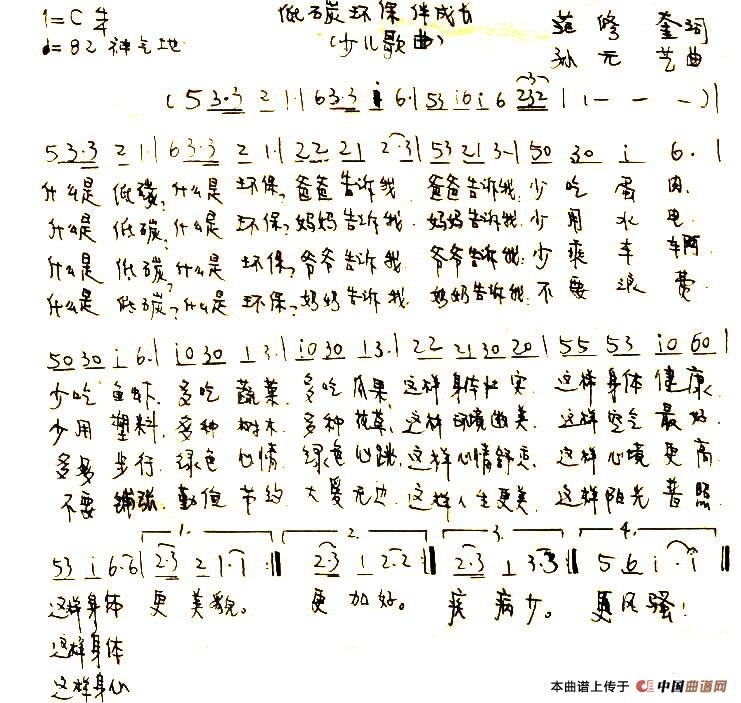 低碳环保伴成长
(少儿歌曲)
1=C 4/4
♩=82 神气地
范修奎词
孙元艺曲
(5 3·3 2 1·| 6 3·3 i 6·| 53 i0 i 6 232 | 1 — — —)|
5 3·3 2 1·| 6 3·3 2 1·| 22 21 2·3| 53 21 3·| 50 30 i 6·|
什么是 低碳?什么是 环保?爸爸告诉我 爸爸告诉我:少 吃 蛋 肉.
什么是 低碳?什么是 环保?妈妈告诉我 妈妈告诉我:少 用 水 电.
什么是 低碳?什么是 环保?爷爷告诉我 爷爷告诉我:少 乘 车 辆.
什么是 低碳?什么是 环保?奶奶告诉我 奶奶告诉我:不 要 浪 费
50 30 i 6·| i0 30 1 3·| i0 30 1 3·| 22 21 30 20| 55 53 i0 60|
少吃 鱼虾.多吃 蔬菜.多吃 瓜果.这样 身体壮实 这样 身体 健康.
少用 塑料.多种 树木.多种 花草.这样 环境优美.这样 空气 最好.
多多 步行.绿色 心情.绿色 心跳.这样 心情舒爽.这样 心境 更高
不要 铺张.勤俭 节约.大爱无边.这样 人生更美.这样 阳光 普照.
1. 2. 3. 4.
53 i 6·6| 2·3 2 1·1 :‖ 2·3 1 2·2 :‖ 2·3 1 3·3 :‖ 5 6 i·i ‖
这样身体 更美貌。 更加好。 疾病少。 更风骚!
这样身体
这样身心
本曲谱上传于 中国曲谱网